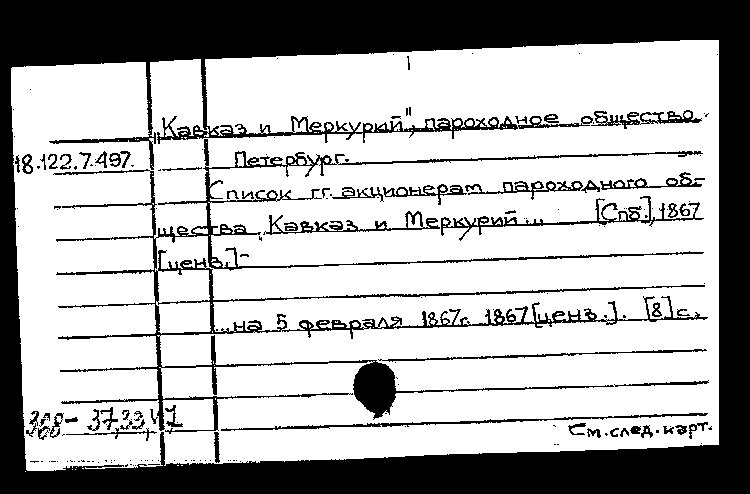 „Кавказ и Меркурий", пароходное общество.
18.122.7.497. Петербург.
Список гг. акционерам пароходного об-
щества „Кавказ и Меркурий... [Спб.], 1867
[ценз.]-
...на 5 февраля 1867г. 1867[ценз.]. [8]с.
368- 37,33,47
См.след.карт.